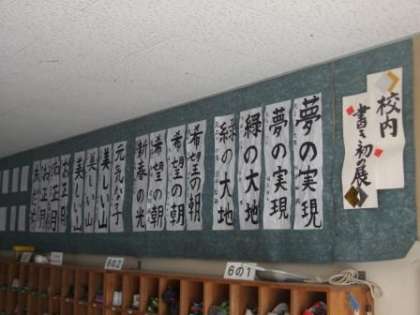 校内
書き初め展
夢の実現
夢の実現
緑の大地
緑の大地
希望の朝
希望の朝
希望の朝
新春の光
元気な子
美しい山
美しい山
美しい山
お正月
お正月
お正月
6の1
6の2